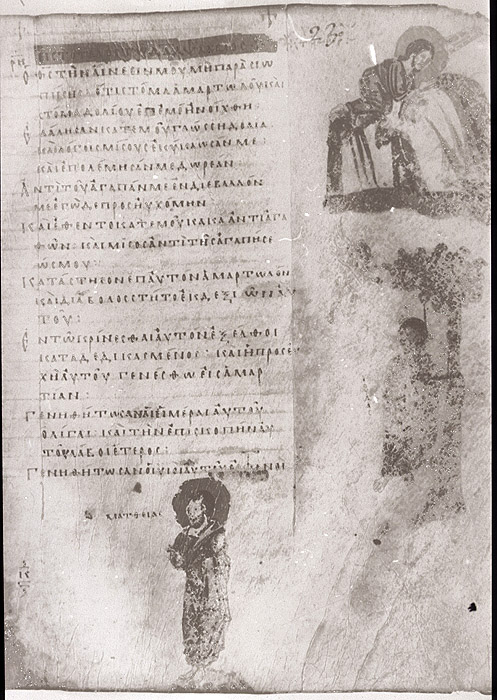 Ο ΘС ΤΗΝΑΙΝΕСΙΝΜΟΥΜΗΠΑΡΑСΙΩ
ΠΗСΗСΟΤΙСΤΟΜΑΑΜΑΡΤΩΛΟΥΚΑΙ
СΤΟΜΑΔΟΛΙΟΥΕΠΕΜΕΗΝΟΙΧΘΗ
ΕΛΑΛΗСΑΝΚΑΤΕΜΟΥΓΛΩССΗΔΟΛΙΑ
ΚΑΙΛΟΓΟΙСΜΙСΟΥСΕΚΥΚΛΩСΑΝΜΕ·
ΚΑΙΕΠΟΛΕΜΗСΑΝΜΕΔΩΡΕΑΝ
ΑΝΤΙΤΟΥΑΓΑΠΑΝΜΕΕΝΔΙΕΒΑΛΛΟΝ
ΜΕΕΓΩΔΕΠΡΟСΗΥΧΟΜΗΝ
ΚΑΙΕΘΕΝΤΟΚΑΤΕΜΟΥΚΑΚΑΑΝΤΙΑΓΑ
ΘΩΝ: ΚΑΙΜΙСΟСΑΝΤΙΤΗСΑΓΑΠΗСΕ
ΩСΜΟΥ:
ΚΑΤΑСΤΗСΟΝΕΠΑΥΤΟΝΑΜΑΡΤΩΛΟΝ
ΚΑΙΔΙΑΒΟΛΟССΤΗΤΟΕΚΔΕΞΙΩΝΑΥ
ΤΟΥ:
ΕΝΤΩΚΡΙΝΕСΘΑΙΑΥΤΟΝΕΞΕΛΘΟΙ
ΚΑΤΑΔΕΔΙΚΑСΜΕΝΟС: ΚΑΙΗΠΡΟСΕΥ
ΧΗΑΥΤΟΥ ΓΕΝΕСΘΩΕΙСΑΜΑΡ
ΤΙΑΝ:
ΓΕΝΗΘΗΤΩСΑΝΑΙΕΙΜΕΡΑΙΑΥΤΟΥ
ΟΛΙΓΑΙ: ΚΑΙΤΗΝΕΠΙСΚΟΠΗΝΑΥ
ΤΟΥΛΑΒΟΙΕΤΕΡΟС:
ΓΕΝΗΘΗΤΩСΑΝΟΙΥΙΟΙΑΥΤΟΥΟΡΦΑΝΟΙ
ΜΑΤΘΕΙΑС